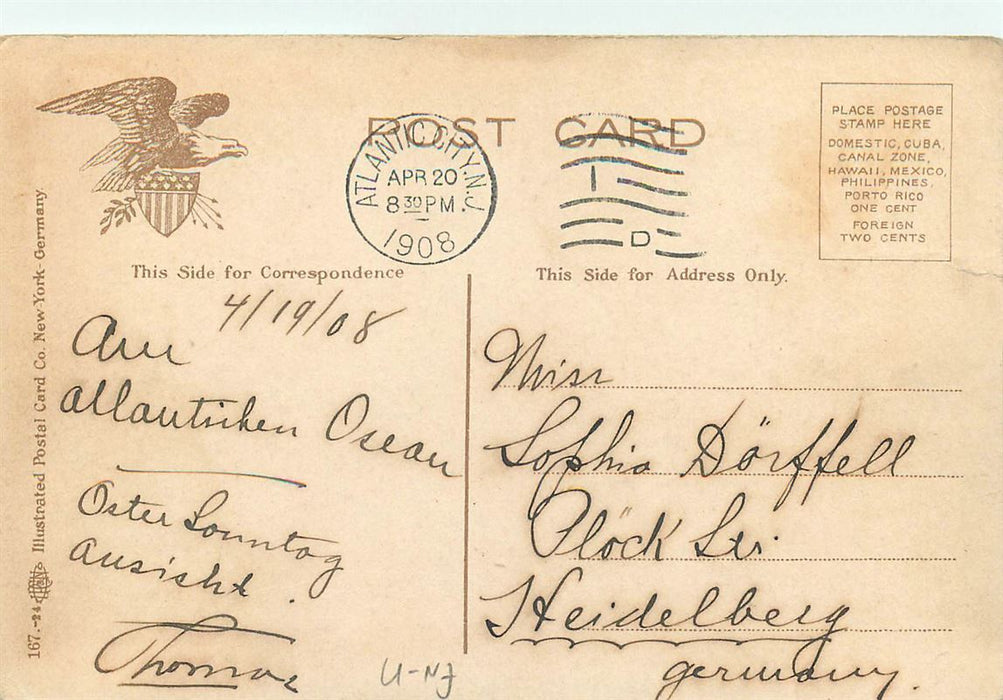 POST CARD
ATLANTIC CITY. N.J.
APR 20
8 30 PM
1908
D
PLACE POSTAGE
STAMP HERE
DOMESTIC, CUBA,
CANAL ZONE,
HAWAII, MEXICO,
PHILIPPINES,
PORTO RICO
ONE CENT
FOREIGN
TWO CENTS
This Side for Correspondence
This Side for Address Only.
167.-24 Illustrated Postal Card Co. New-York- Germany.
4/19/08
Am
atlantischen Ocean
Oster Sonntag
ansicht.
Thomas
Miss
Sophia Dörffell
Plöck Str.
Heidelberg
Germany.
U-NJ